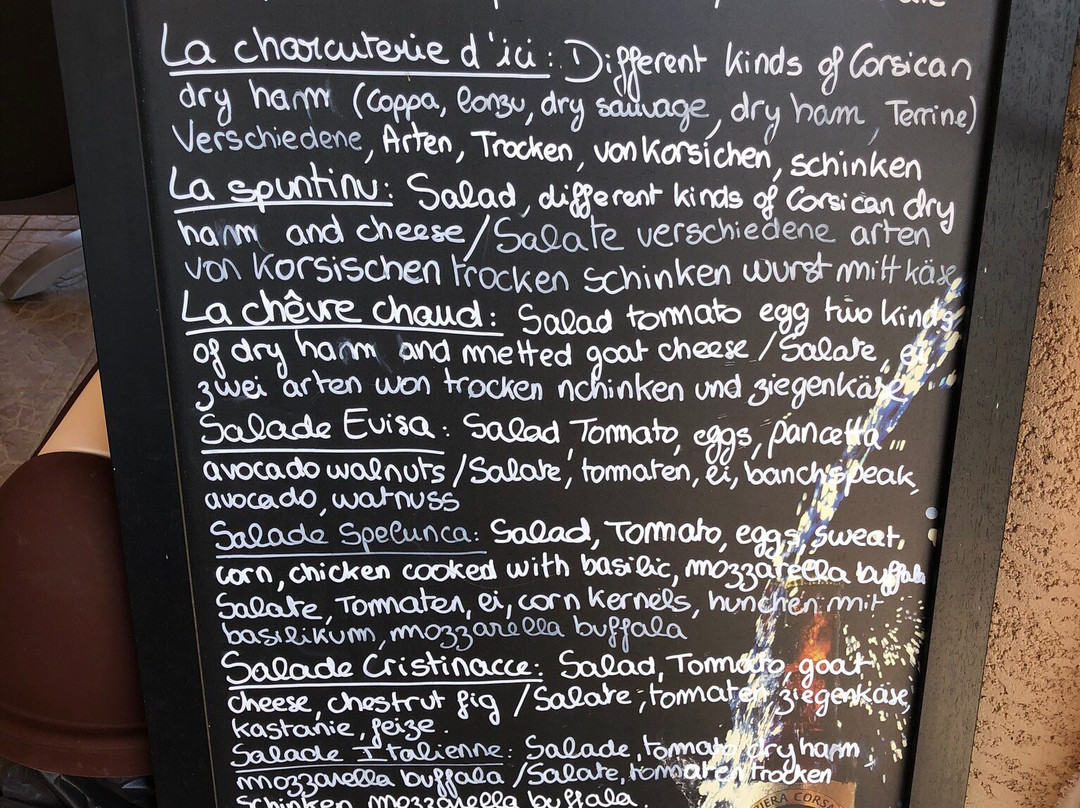 La charcuterie d'ici : Different kinds of Corsican
dry harm (coppa, lonzu, dry sauvage, dry ham, Terrine)
Verschiedene, Arten, Trocken, von Korsichen, schinken
La spuntinu : Salad, different kinds of Corsican dry
harm and cheese / Salate verschiedene arten
von Korsischen trocken schinken wurst mitt käse
La chêvre chaud : Salad tomato egg two kinds
of dry harm and metted goat cheese / Salate, ei
zwei arten won trocken nchinken und ziegenkäse
Salade Evisa : Salad Tomato, eggs, pancetta
avocado walnuts / Salate, tomaten, ei, banch's peak,
avocado, watnuss
Salade Spelunca : Salad, Tomato, eggs, sweat,
corn, chicken cooked with basilic, mozzarella buffala
Salate, Tomaten, ei, corn kernels, hunchen mit
basilikum, mozzarella buffala
Salade Cristinacce : Salad, Tomato, goat
cheese, chestrut fig / Salate, tomaten ziegenkäse,
kastanie, feize.
Salade Italienne : Salade, tomato, dry harm,
mozzarella buffala / Salate, tomaten trocken
schinken mozzarella buffala.